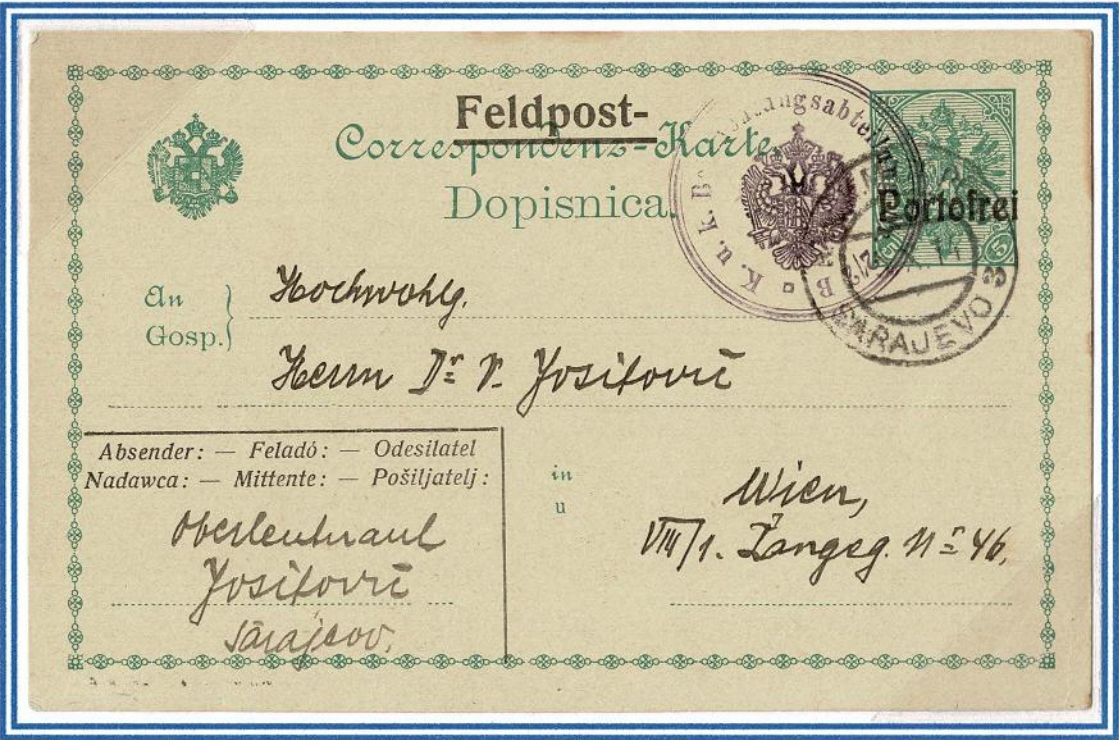 Feldpost-
Correspondenz-Karte
Dopisnica.
Portofrei
5 5
K. u. k.
SARAJEVO 3
An
Gosp.
Hochwohlg.
Herrn Dr. V. Jositović
Absender: — Feladó: — Odesilatel
Nadawca: — Mittente: — Pošiljatelj:
Oberleutnant
Jositović
Sarajevo.
in
u
Wien,
VIII/1. Langeg. Nr 46.